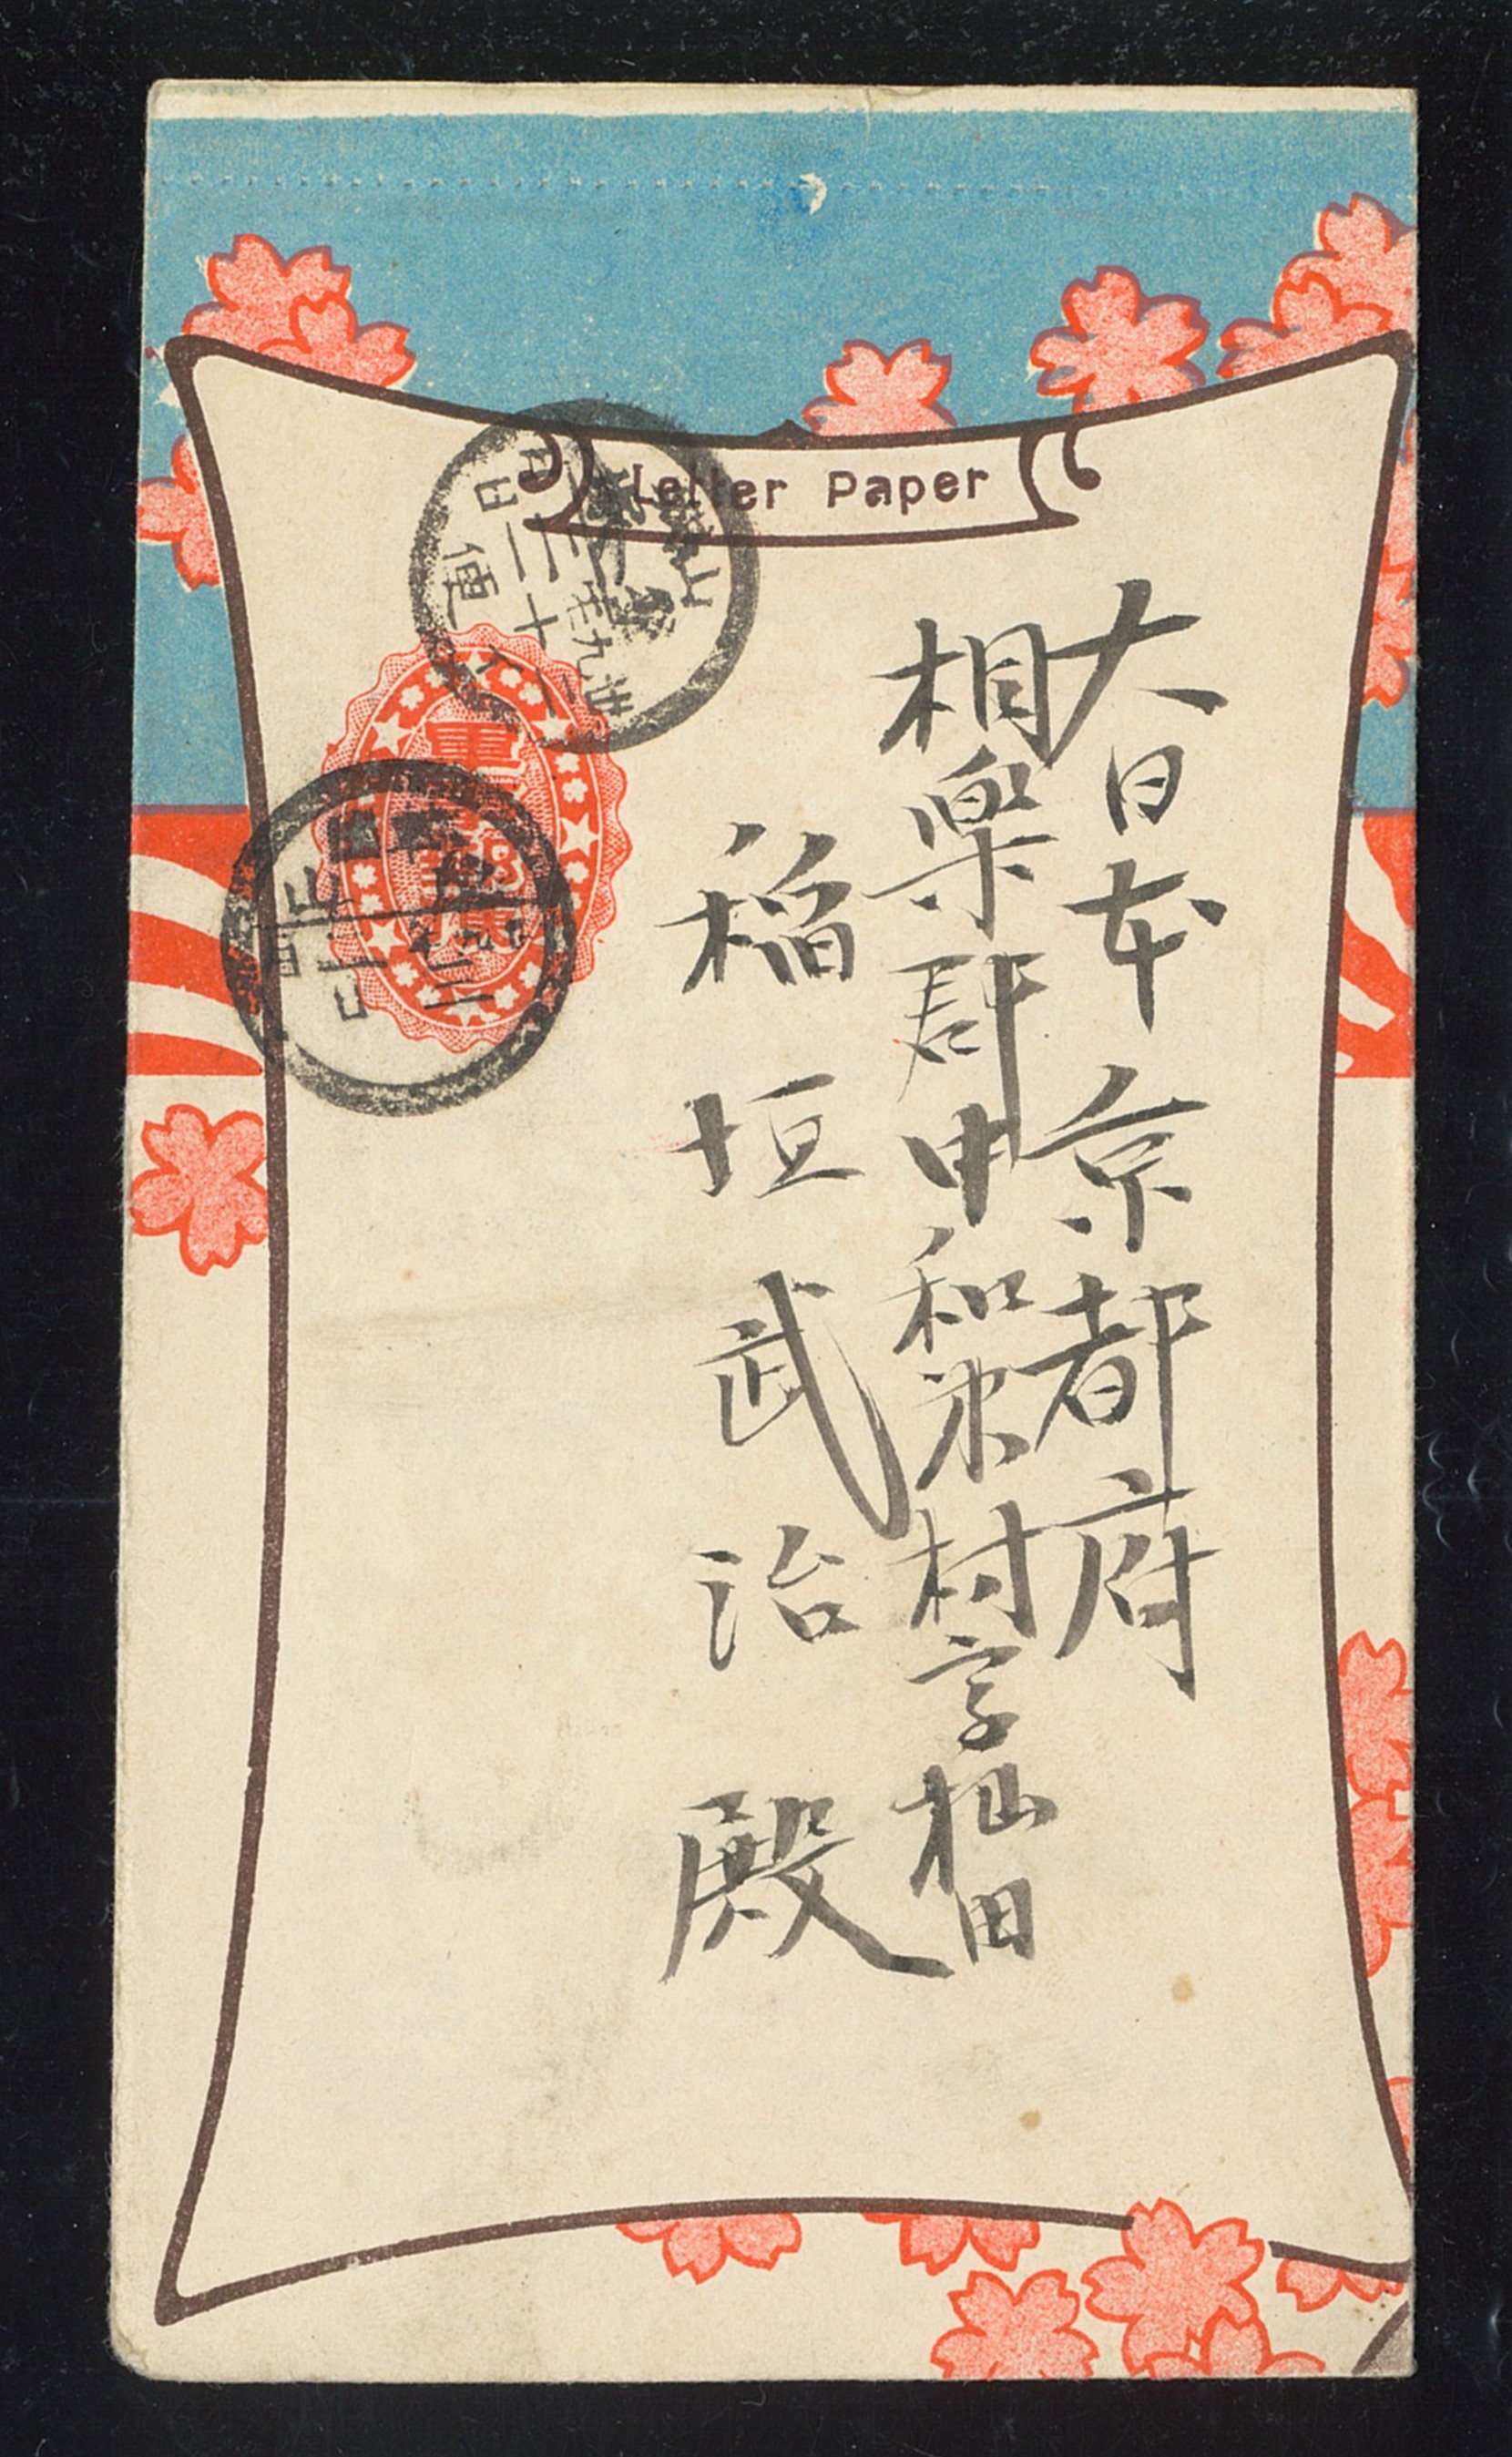 Letter Paper
大日本 京都府
相楽郡中和束村字杣田
稲垣武治 殿
軍事
郵便